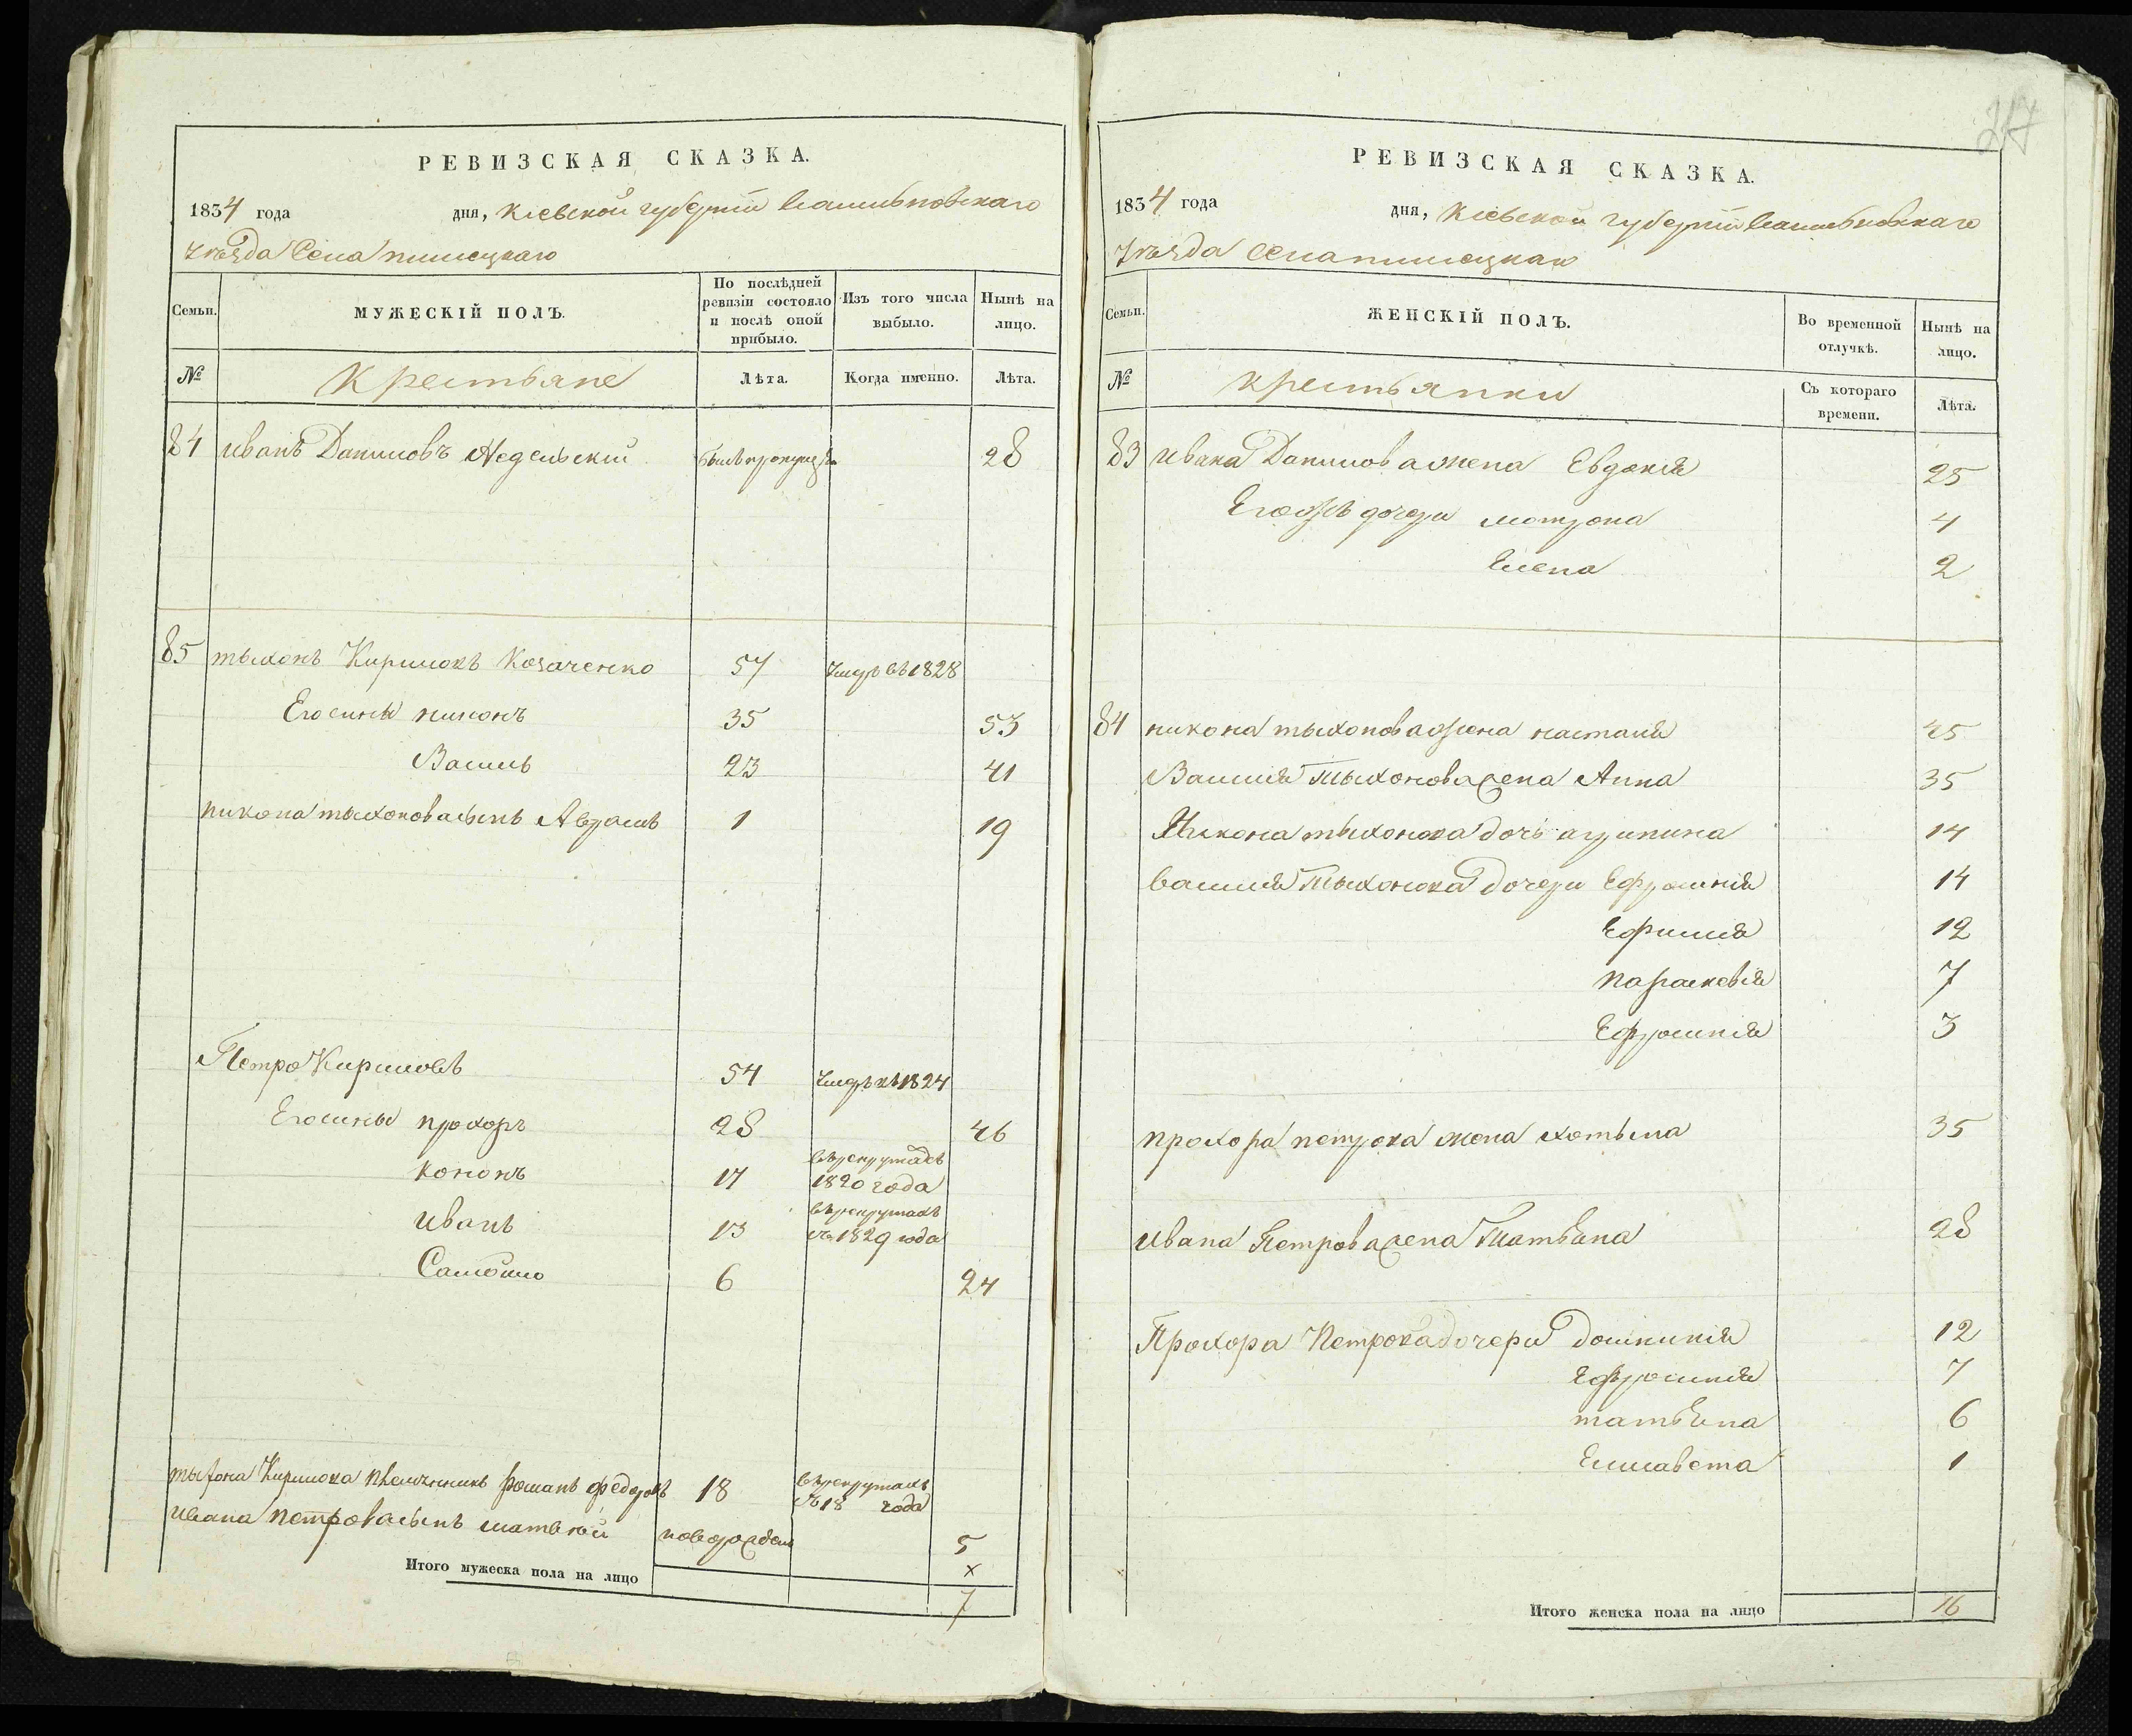 РЕВИЗСКАЯ СКАЗКА.
1834 года дня, Кіевской губерніи
уѣзда Села
Семьи.
МУЖЕСКІЙ ПОЛЪ.
По послѣдней ревизіи состояло и послѣ оной прибыло.
Изъ того числа выбыло.
Нынѣ на лицо.
№ Крестьяне Лѣта. Когда именно. Лѣта.
84 Иванъ Даниловъ Недельский 28
85 тыхонъ Кириловъ Козаченко 57 умеръ въ 1828
Его сины никонъ 35 53
Василь 23 41
никона тыхонова сынъ 1 19
Петро Кириловъ 54 умеръ въ 1824
Его сины прохоръ 28 46
кононъ 17 въ рекрутахъ 1820 года
иванъ 13 въ рекрутахъ съ 1829 года
Самойло 6 24
Кирилова племенникъ романъ федоровъ 18 въ рекрутахъ съ 18 года
ивана петрова сынъ матвей новорожден 5
х
Итого мужеска пола на лицо 7
217
РЕВИЗСКАЯ СКАЗКА.
1834 года дня, Кіевской губерніи
уѣзда Села
Семьи.
ЖЕНСКІЙ ПОЛЪ.
Во временной отлучкѣ.
Нынѣ на лицо.
№ крестьянки Съ котораго времени. Лѣта.
83 ивана Данилова жена Евдокія 25
Егожъ дочери мотрона 4
Елена 2
84 никона тыхонова жена настасія 45
Василія тыхонова жена Анна 35
Никона тыхонова дочь агрипина 14
василія тыхонова дочери Ефросинія 14
Ефимія 12
параскевія 7
Ефросинія 3
прохора петрова жена хотына 35
ивана Петрова жена татьяна 28
Прохора Петрова дочери домникія 12
Ефросинія 7
татьяна 6
Елисавета 1
Итого женска пола на лицо 16